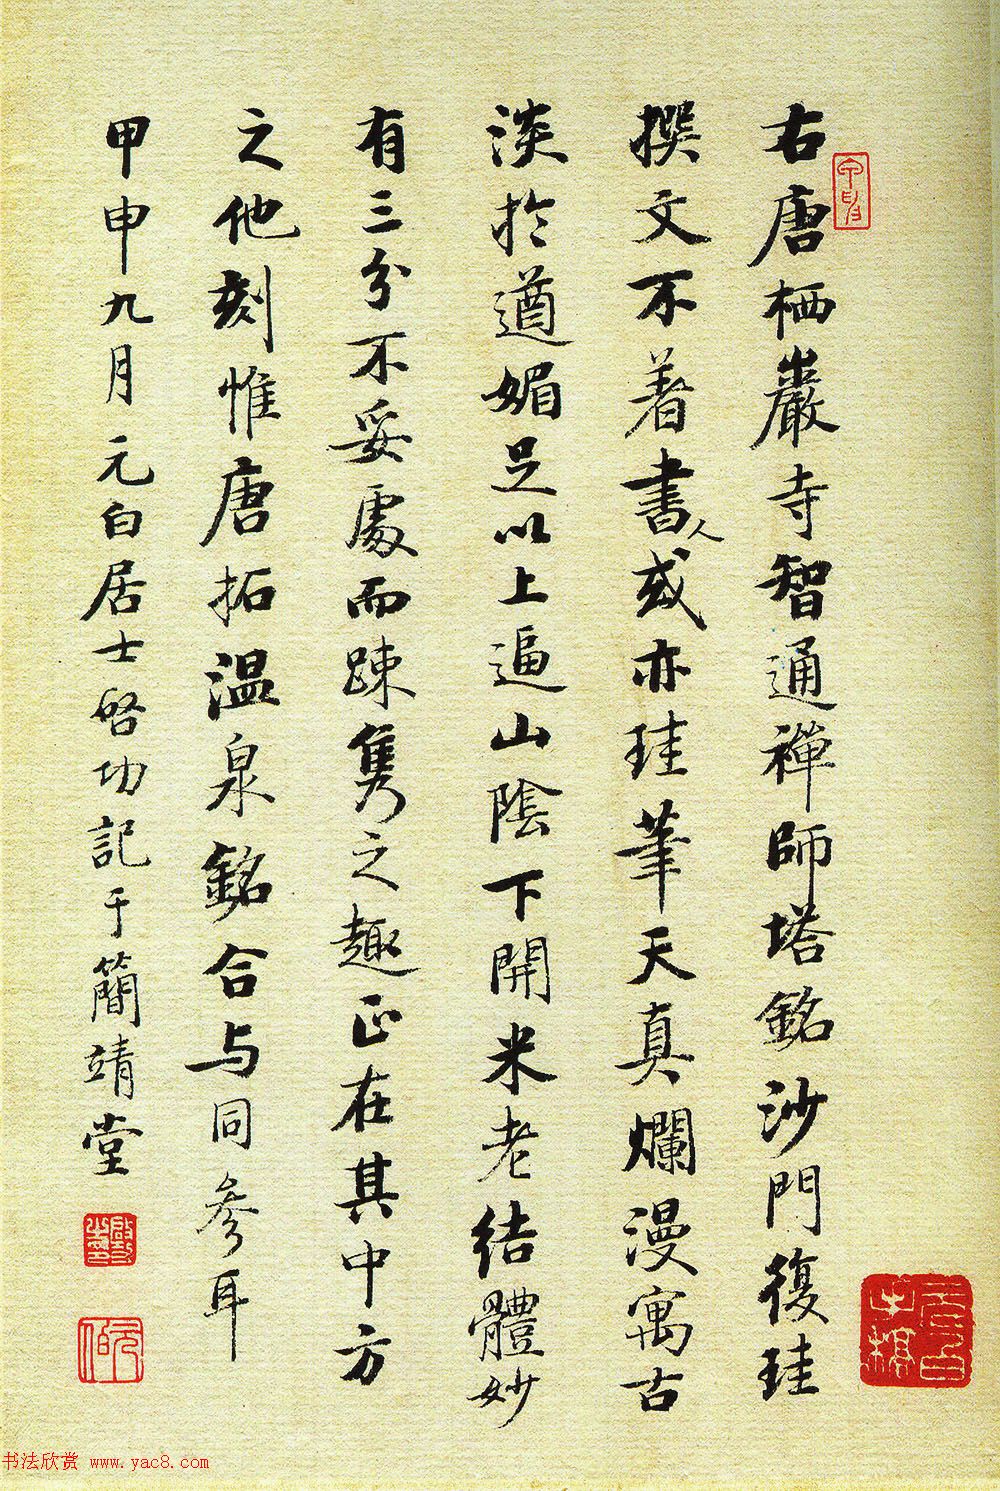 右唐栖巖寺智通禪師塔銘沙門復珪
撰文不著書人或亦珪筆天真爛漫寓古
淡於遒媚足以上逼山陰下開米老結體妙
有三分不妥處而踈雋之趣正在其中方
之他刻惟唐拓温泉銘合与同參耳
甲申九月元白居士啓功記于簡靖堂
元白
书法欣赏 www.yac8.com